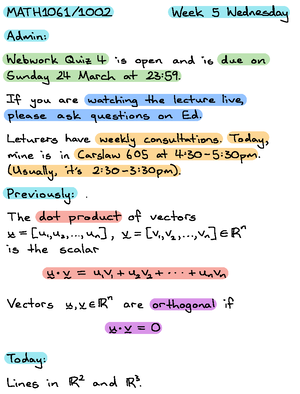 MATH1061/1002 Week 5 Wednesday
Admin:
Webwork Quiz 4 is open and is due on
Sunday 24 March at 23:59.
If you are watching the lecture live,
please ask questions on Ed.
Leturers have weekly consultations. Today,
mine is in Carslaw 605 at 4:30-5:30pm.
(Usually, it's 2:30-3:30pm).
Previously:
The dot product of vectors
u = [u₁, u₂, ..., uₙ], v = [v₁, v₂, ..., vₙ] ∈ ℝⁿ
is the scalar
u · v = u₁v₁ + u₂v₂ + ··· + uₙvₙ
Vectors u, v ∈ ℝⁿ are orthogonal if
u · v = 0
Today:
Lines in ℝ² and ℝ³.